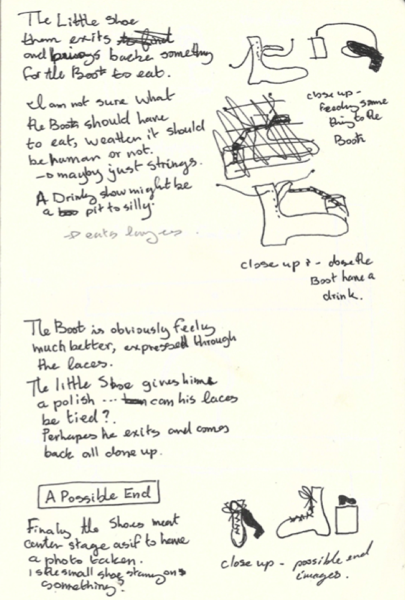 The Little Shoe
them exits to find
and brings backe something
for the Boot to eat.
I am not sure what
the Boots should have
to eat, weatten it should
be human or not.
→ mayby just strings.
A Drinky show might be
a pit to silly.
→ eats
close up -
feeding some
thing to the
Boot
close up + - does the
Boot have a
drink.
The Boot is obviously feeling
much better, expressed through
the laces.
The little Shoe gives him
a polish ... can his laces
be tied?.
Perhaps he exits and comes
back all done up.
A Possible End
Finaly the Shoes meet
center stage as if to have
a photo taken.
is the small shoe on
something?
close up - possible end
images.